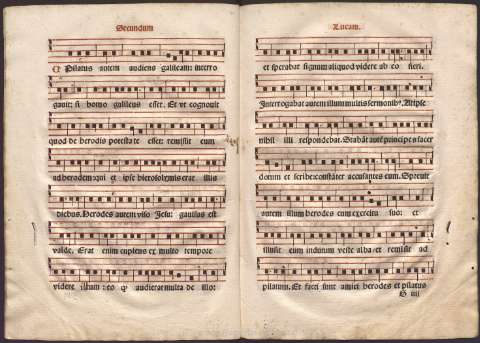 Secundum
Pilatus autem audiens galileam: interro
gauit: si homo galileus esset. Et vt cognouit
quod de herodis potestate esset: remisit eum
ad herodem: qui et ipse hierosolymis erat illis
diebus. Herodes autem viso Jesu: gauisus est
valde. Erat enim cupiens ex multo tempore
videre illum: eo qꝫ audierat multa de illo:
Lucam.
et sperabat signum aliquod videre ab eo fieri.
Interrogabat autem illum multis sermonibꝰ. At ipse
nihil illi respondebat. Stabāt autē principes sacer
dotum et scribe: constāter accusantes eum. Spreuit
autem illum herodes cum exercitu suo: et
illusit eum indutum veste alba: et remisit ad
pilatum. Et facti sunt amici herodes et pilatus
G iiij